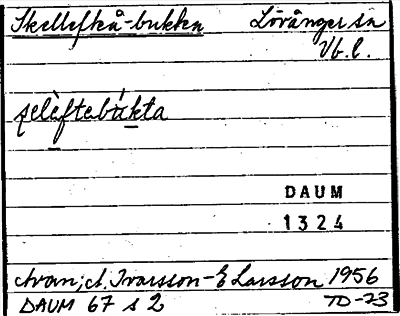 Skellefteå-bukken Lövånger sn
Vb. l.
selèftebúkta
DAUM
1324
Ivarsson - E Larsson 1956
DAUM 67 s 2 TD-73